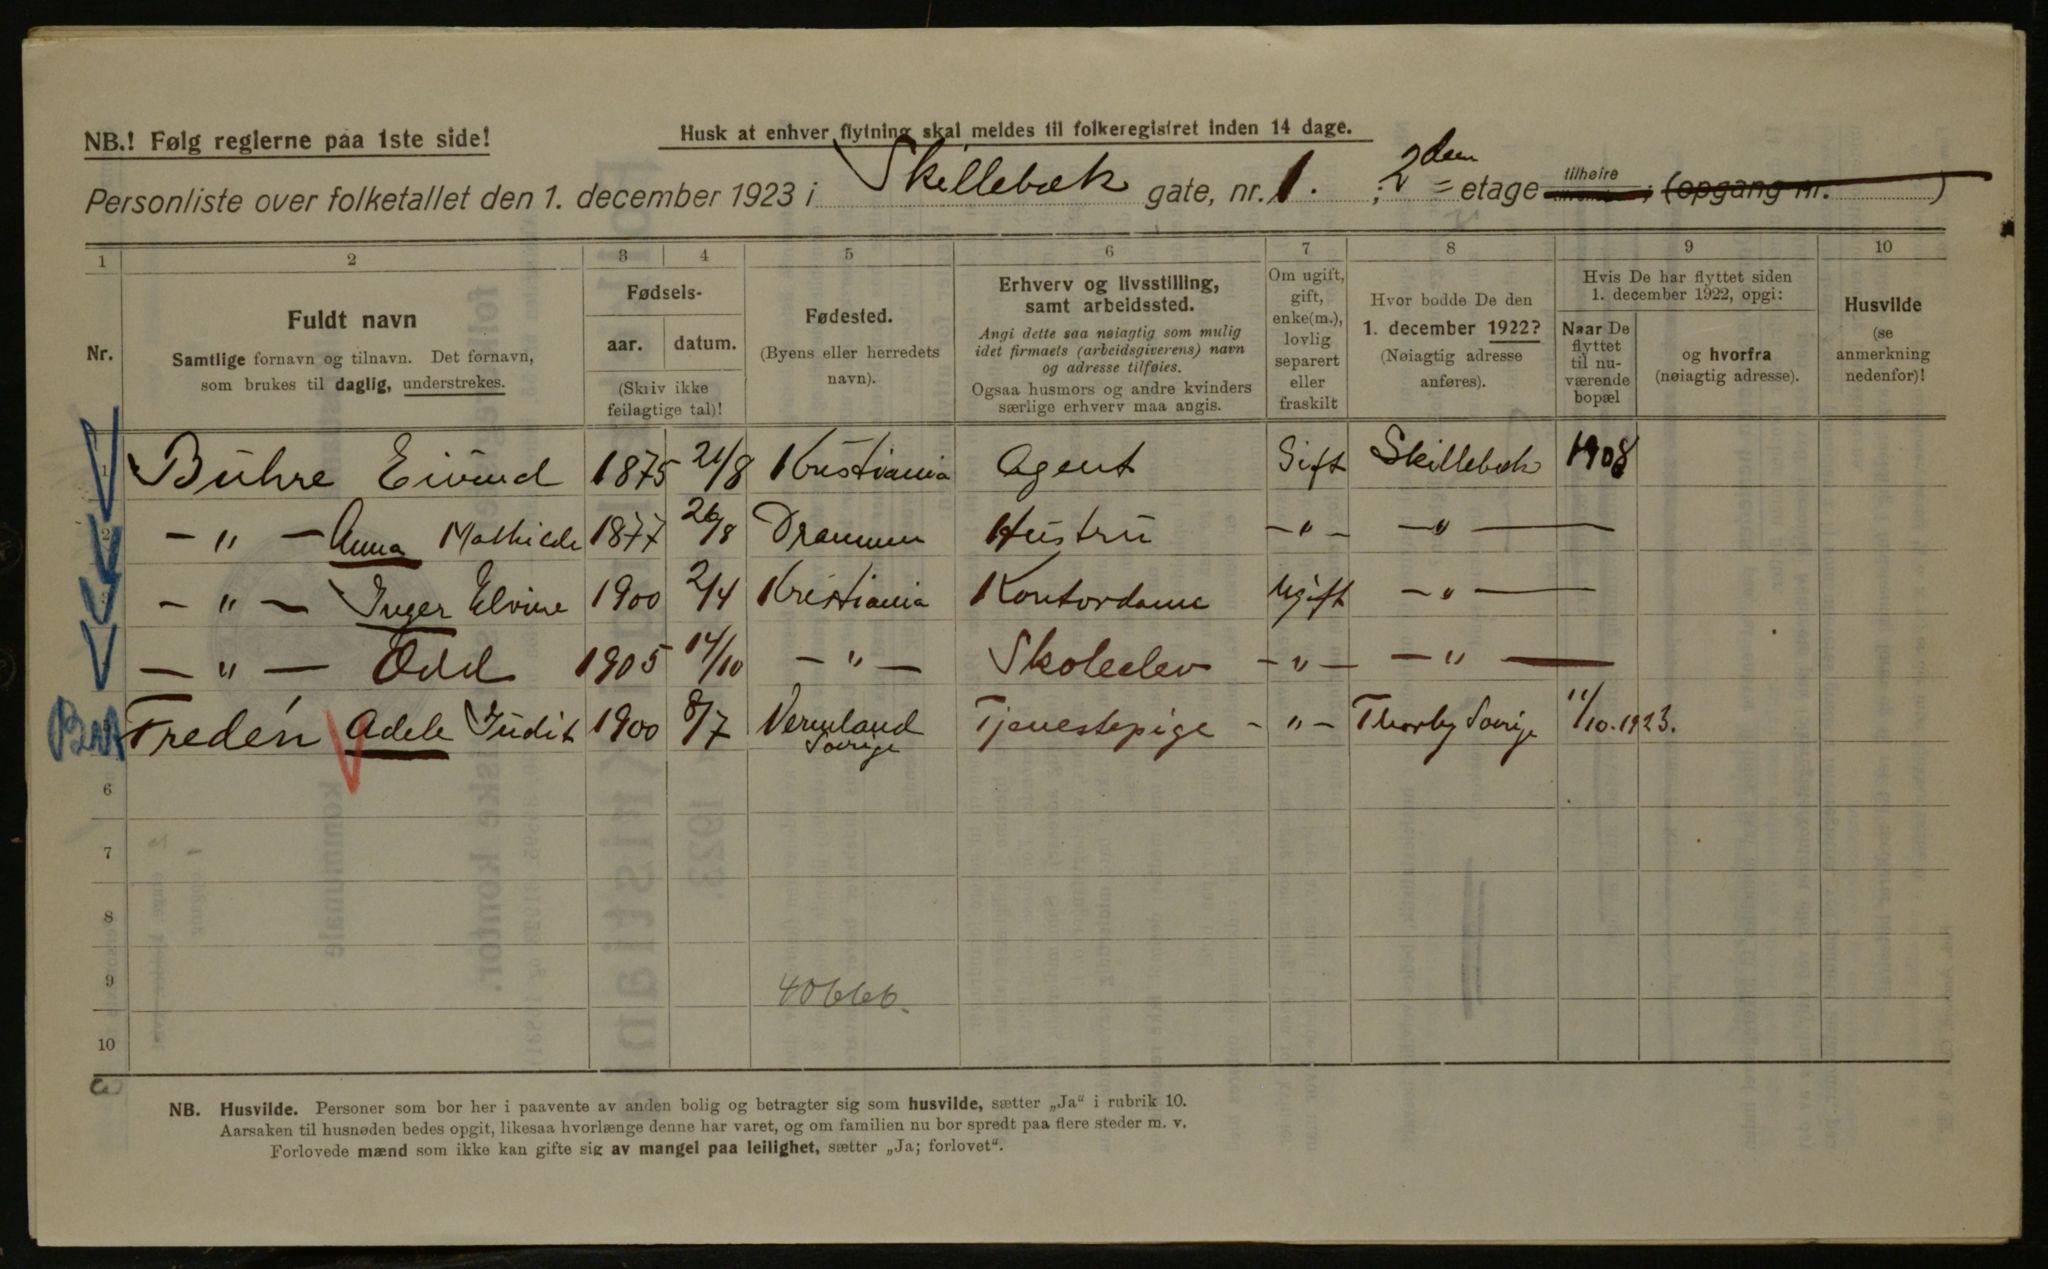 NB.! Følg reglerne paa 1ste side!
Husk at enhver flytning skal meldes til folkeregistret inden 14 dage.
Personliste over folketallet den 1. december 1923 i Skillebæk gate, nr. 1. ; 2den = etage tilhøire ; (opgang nr. )
1 2 3 4 5 6 7 8 9 10
Nr.
Fuldt navn
Samtlige fornavn og tilnavn. Det fornavn,
som brukes til daglig, understrekes.
Fødsels-
aar. datum.
(Skriv ikke
feilagtige tal)!
Fødested.
(Byens eller herredets
navn).
Erhverv og livsstilling,
samt arbeidssted.
Angi dette saa nøiagtig som mulig
idet firmaets (arbeidsgiverens) navn
og adresse tilføies.
Ogsaa husmors og andre kvinders
særlige erhverv maa angis.
Om ugift,
gift,
enke(m.),
lovlig
separert
eller
fraskilt
Hvor bodde De den
1. december 1922?
(Nøiagtig adresse
anføres).
Hvis De har flyttet siden
1. december 1922, opgi:
Naar De
flyttet
til nu-
værende
bopæl
og hvorfra
(nøiagtig adresse).
Husvilde
(se
anmerkning
nedenfor)!
1 Buhre Eivind 1875 21/8 Kristiania Agent Gift Skillebæk 1908
2 - " - Anna Mathilde 1877 26/8 Drammen Hustru - " - - " -
3 - " - Inger Elvine 1900 2/4 Kristiania Kontordame Ugift - " -
- " - Odd 1905 14/10 - " - Skoleelev - " - - " -
Fredén Adele Judit 1900 8/7 Vermland Sverige Tjenestepige - " - Thorby Sverige 11/10.1923.
6
7
8
9 40666.
10
3
NB. Husvilde. Personer som bor her i paavente av anden bolig og betragter sig som husvilde, sætter „Ja“ i rubrik 10.
Aarsaken til husnøden bedes opgit, likesaa hvorlænge denne har varet, og om familien nu bor spredt paa flere steder m. v.
Forlovede mænd som ikke kan gifte sig av mangel paa leilighet, sætter „Ja; forlovet“.